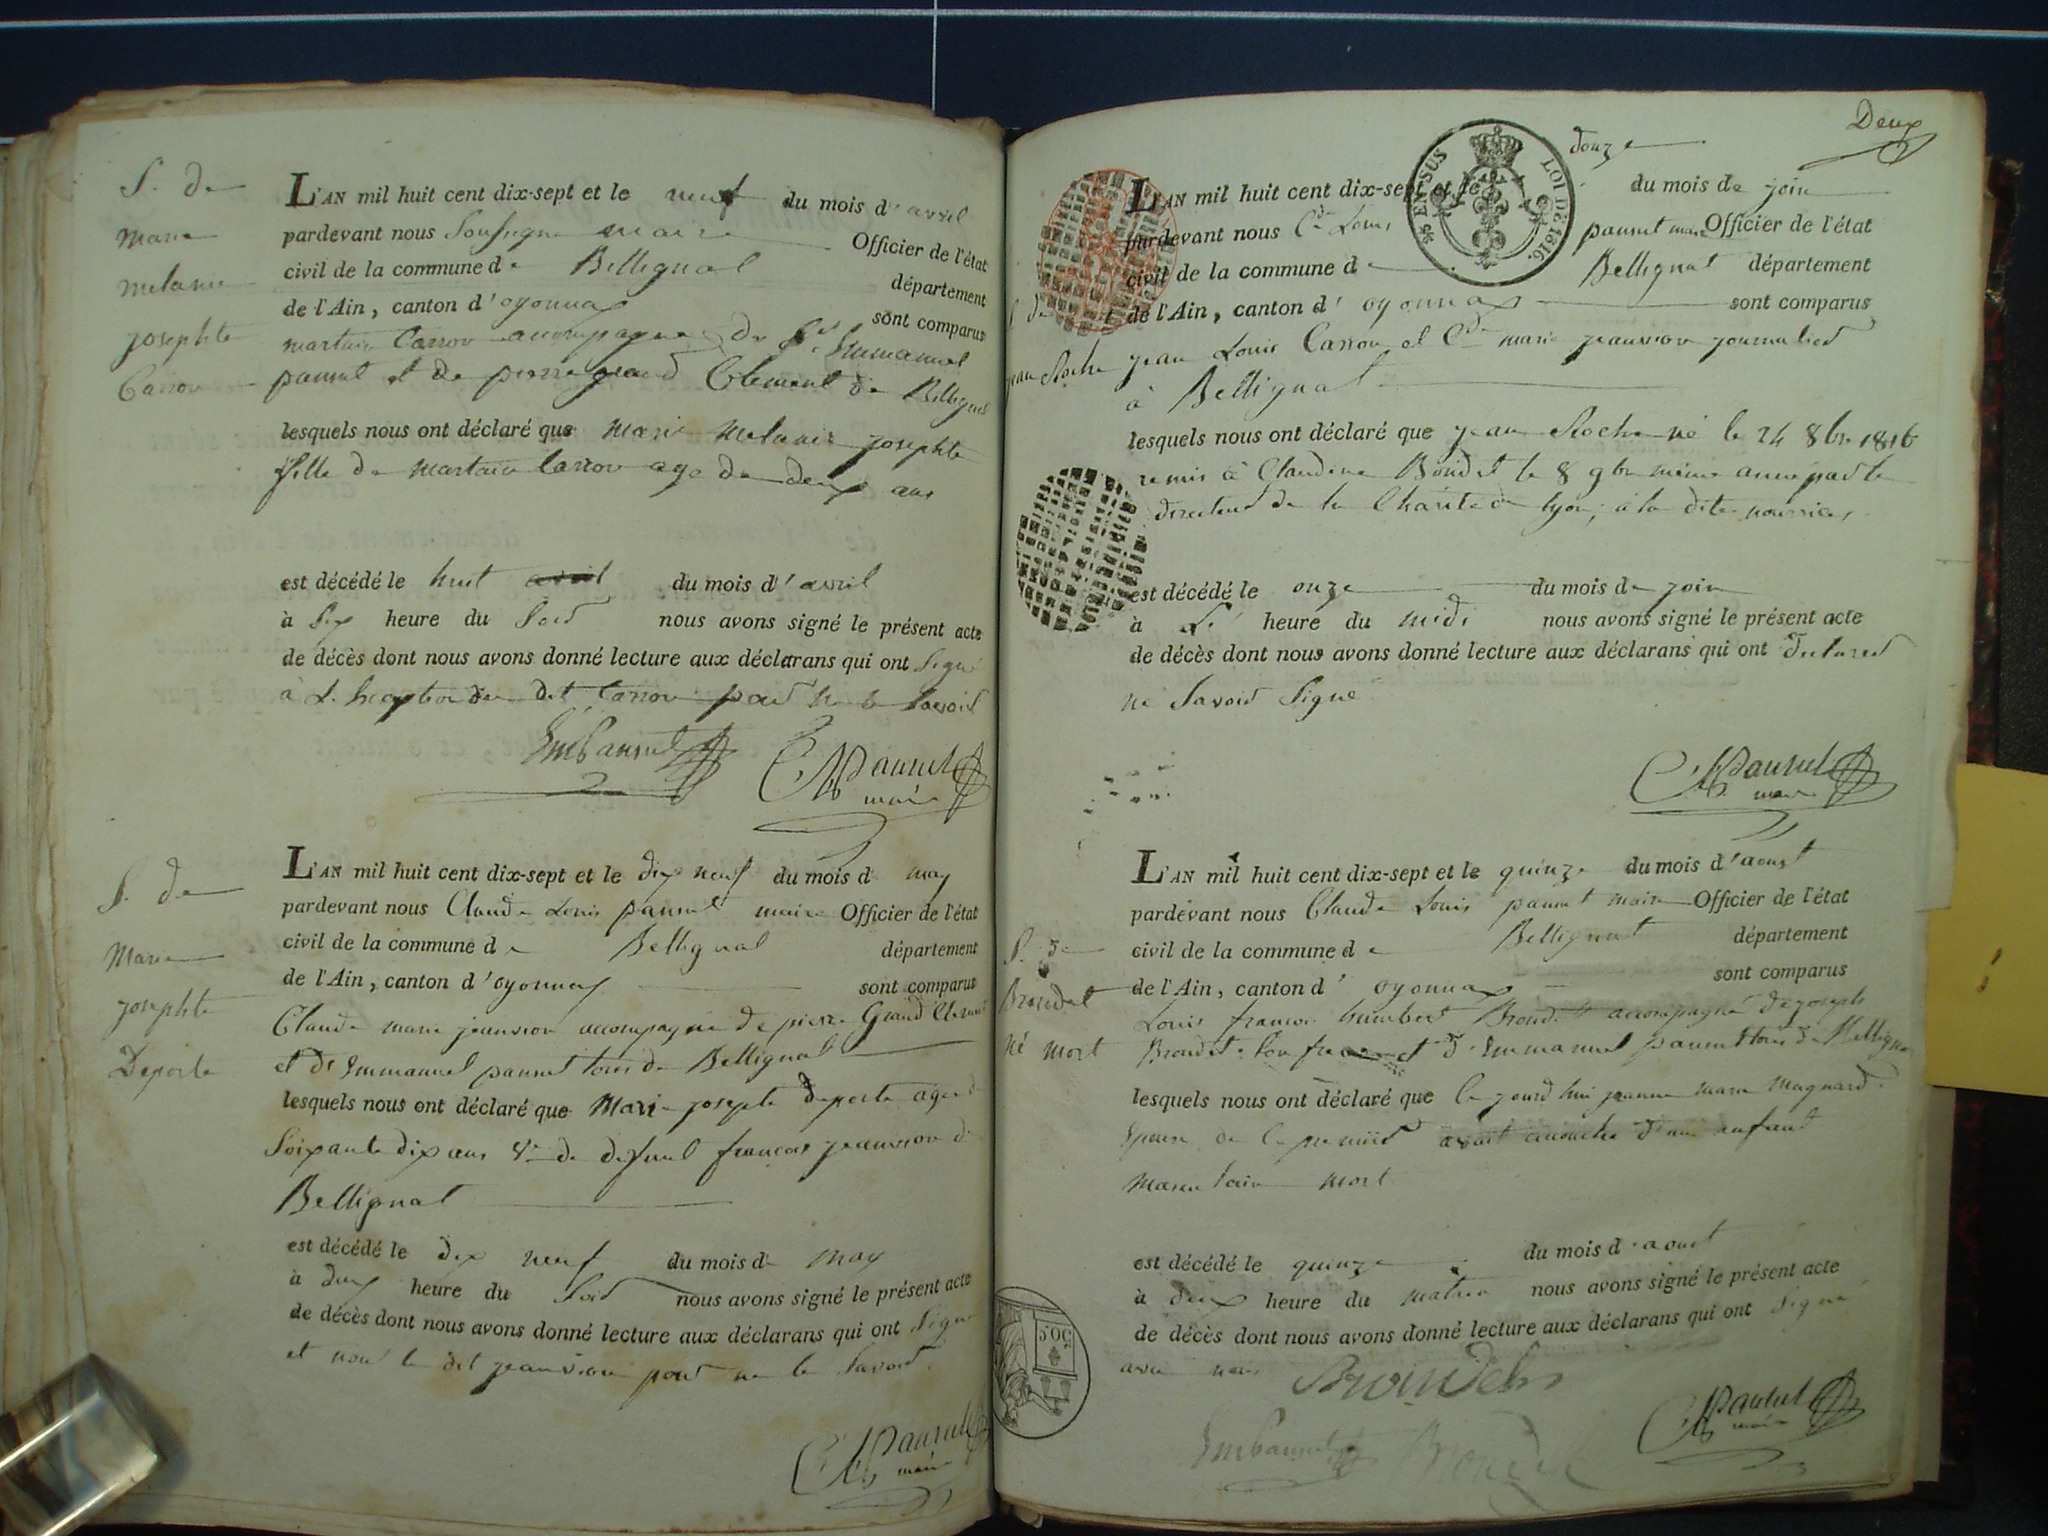 S. de
Marie
melanie
josephte
Carron
L'AN mil huit cent dix-sept et le neuf du mois d'avril
pardevant nous Soussigne maire Officier de l'état
civil de la commune de Bellignat département
de l'Ain, canton d'oyonnax sont comparus
martain Carron acompagne de Sr Emmanuel
pannet et de pierre grand Clement de Bellignat
lesquels nous ont déclaré que Marie Melanie josephte
fille de martain Carron age de deux ans
est décédé le huit avril du mois d'avril
à Six heure du Soir nous avons signé le présent acte
de décès dont nous avons donné lecture aux déclarans qui ont Signé
à L'exception du dit Carron pour ne le Savoir
EmPannet
CLPannet
maire
S. de
Marie
josephte
Deporte
L'AN mil huit cent dix-sept et le dix neuf du mois d may
pardevant nous Claude Louis pannet maire Officier de l'état
civil de la commune de Bellignat département
de l'Ain, canton d'oyonnax sont comparus
Claude marie jeanvion accompagne de pierre Grand Clement
et de Emmanuel pannet tous de Bellignat
lesquels nous ont déclaré que Marie josephte deporte agee de
Soixante dix ans Ve de defunt francois jeanvion de
Bellignat
est décédé le dix neuf du mois de may
à deux heure du Soir nous avons signé le présent acte
de décès dont nous avons donné lecture aux déclarans qui ont Signe
et non le dit jeanvion pour ne le Savoir.
CLPannet
maire
Deux
douze
EN SUS LOI DE 1816.
L'AN mil huit cent dix-sept et le du mois de join
pardevant nous Cde Louis pannet maire Officier de l'état
civil de la commune de Bellignat département
de l'Ain, canton d'oyonnax sont comparus
S. de
jean Roche
jean Louis Carron et Cde marie jeanvion journalier
à Bellignat
lesquels nous ont déclaré que jean Roche né le 24 8bre 1816
remis à Claudine Bondet le 8 9bre même annee par le
directeur de la Charite de lyon, à la dite nourrice,
est décédé le onze du mois de join
à heure du midi nous avons signé le présent acte
de décès dont nous avons donné lecture aux déclarans qui ont declarer
ne Savoir Signé
CLPannet
maire
S. de
Brondet
né mort
L'AN mil huit cent dix-sept et le quinze du mois d'aoust
pardevant nous Claude Louis pannet maire Officier de l'état
civil de la commune de Bellignat département
de l'Ain, canton d'oyonnax sont comparus
Louis francois humbert Brondet accompagné de joseph
Brondet Son frere et de Emmanuel pannet tous de Bellignat
lesquels nous ont déclaré que Ce jourd'hui jeanne marie Magnard
Epouse de Ce premier avait accouché d'un enfant
mort
est décédé le quinze du mois d'aoust
à deux heure du matin nous avons signé le présent acte
de décès dont nous avons donné lecture aux déclarans qui ont Signé
avec nous
50C
EmPannet
Brondet
CLPannet
maire